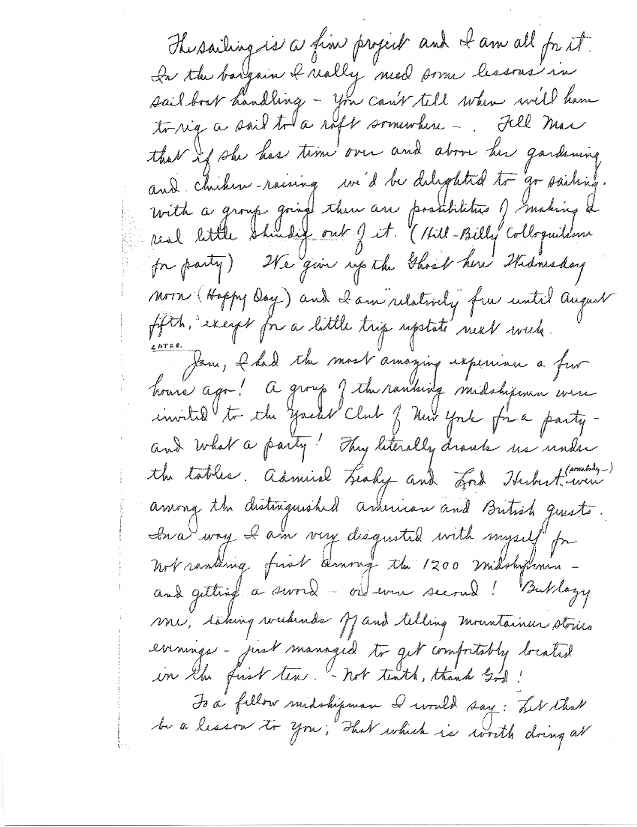 The sailing is a fine project and I am all for it.
In the bargain I really need some lessons in
sail boat handling - you can't tell when we'll have
to rig a sail to a raft somewhere - . Tell Mac
that if she has time over and above her gardening
and chicken-raising we'd be delighted to go sailing.
With a group going there are possibilities of making a
real little shindig out of it. (Hill-Billy Colloquialism
for party) We give up the Ghost here Wednesday
noon (Happy Day) and I am "relatively" free until August
fifth, except for a little trip upstate next week.
LATER.
Jam, I had the most amazing experience a few
hours ago! A group of the ranking midshipmen were
invited to the Yacht Club of New York for a party -
and what a party! They literally drank us under
the tables. Admiral Leahy and Lord Herbert (somebody-) were
among the distinguished American and British guests.
In a way I am very disgusted with myself for
not ranking first among the 1200 midshipmen -
and getting a sword - or even second! But lazy
me, taking weekends off and telling mountaineer stories
evenings - just managed to get comfortably located
in the first ten. - Not tenth, thank God!
To a fellow midshipman I would say: Let that
be a lesson to you; That which is worth doing at